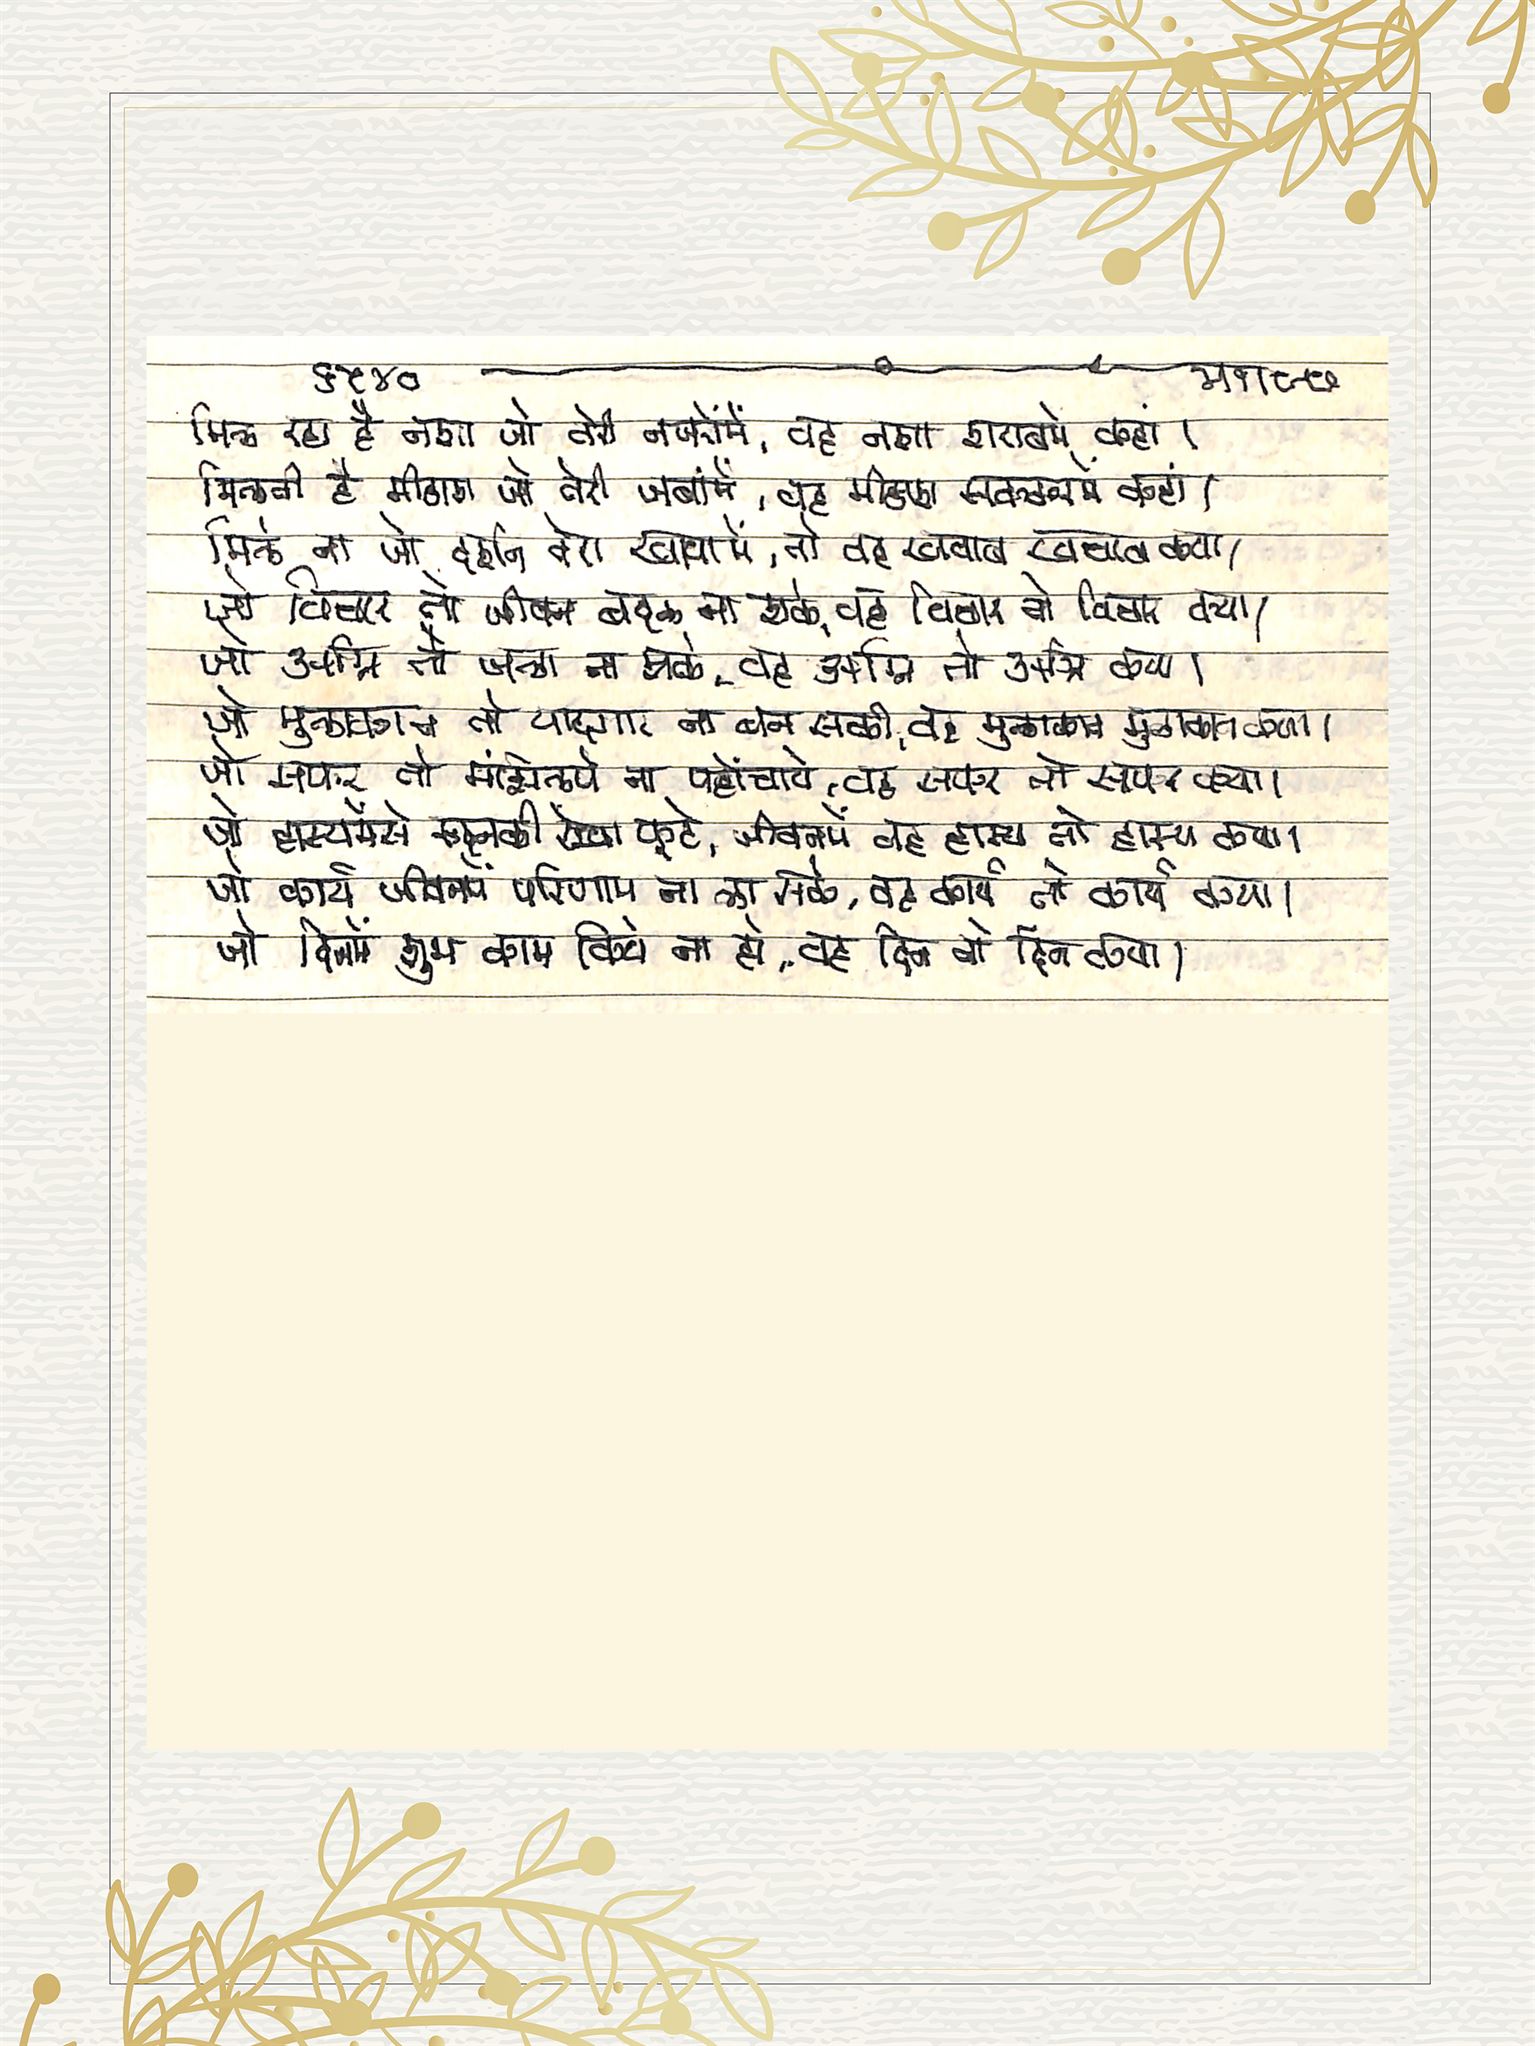 ६५४०
मिल रहा है नशा जो तेरी नजरोंमें, वह नशा शराबमें कहां ।
मिलती है मीठाश जो तेरी जबांमें, वह मीठाश सक्करमें कहां ।
मिले ना जो दर्शन तेरा ख्वाबोंमें, तो वह ख्वाब क्या ।
जो विचार तो जीवन बदल ना शके, वह विचार तो विचार क्या ।
जो अग्नि तो जला ना शके, वह अग्नि तो अग्नि क्या ।
जो मुलाकात तो यादगार ना बन सकी, वह मुलाकात मुलाकात क्या ।
जो सफर तो मंझिलपे ना पहोंचाये, वह सफर तो सफर क्या ।
जो हास्यमेंसे रूदनकी रेखा फूटे, जीवनमें वह हास्य तो हास्य क्या ।
जो कार्य जीवनमें परिणाम ना ला सके, वह कार्य तो कार्य क्या ।
जो दिनमें शुभ काम किये ना हो, वह दिन तो दिन क्या ।